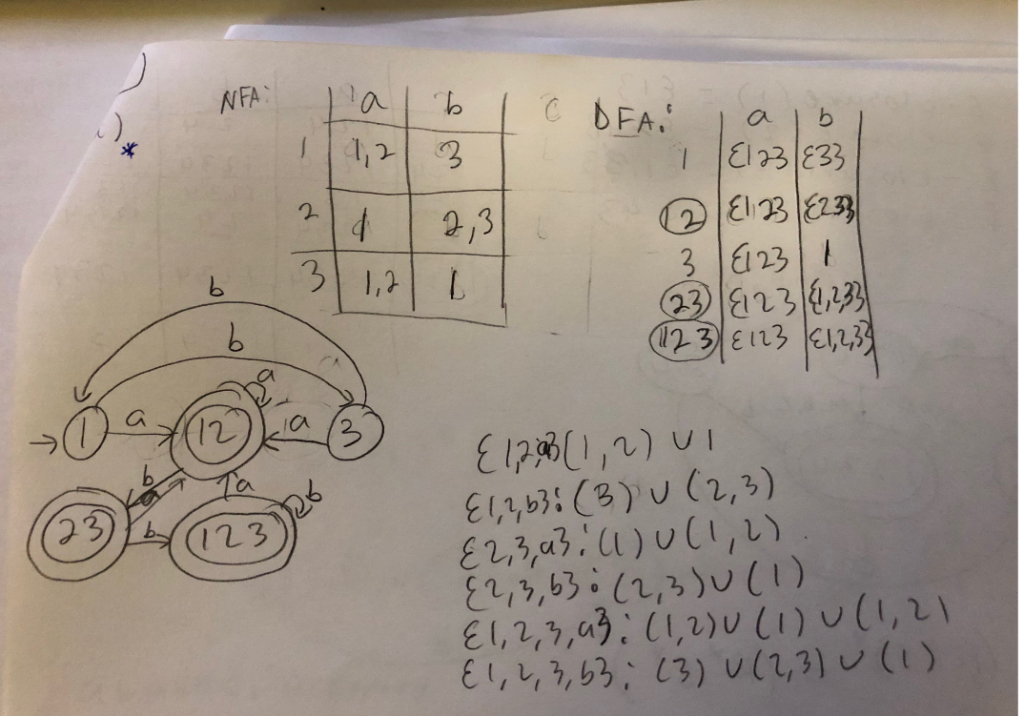 )
)
*
NFA: a b
1 1,2 3
2 1 2,3
3 1,2 1
DFA: a b
1 {12} {3}
12 {12} {23}
3 {12} 1
23 {12} {1,23}
123 {12} {1,2,3}
b
b
a
1 a 12 a 3
b a a b
23 b 123
{1,2,a} (1,2) ∪ 1
{1,2,b}: (3) ∪ (2,3)
{2,3,a}: (1) ∪ (1,2)
{2,3,b}: (2,3) ∪ (1)
{1,2,3,a}: (1,2) ∪ (1) ∪ (1,2)
{1,2,3,b}: (3) ∪ (2,3) ∪ (1)